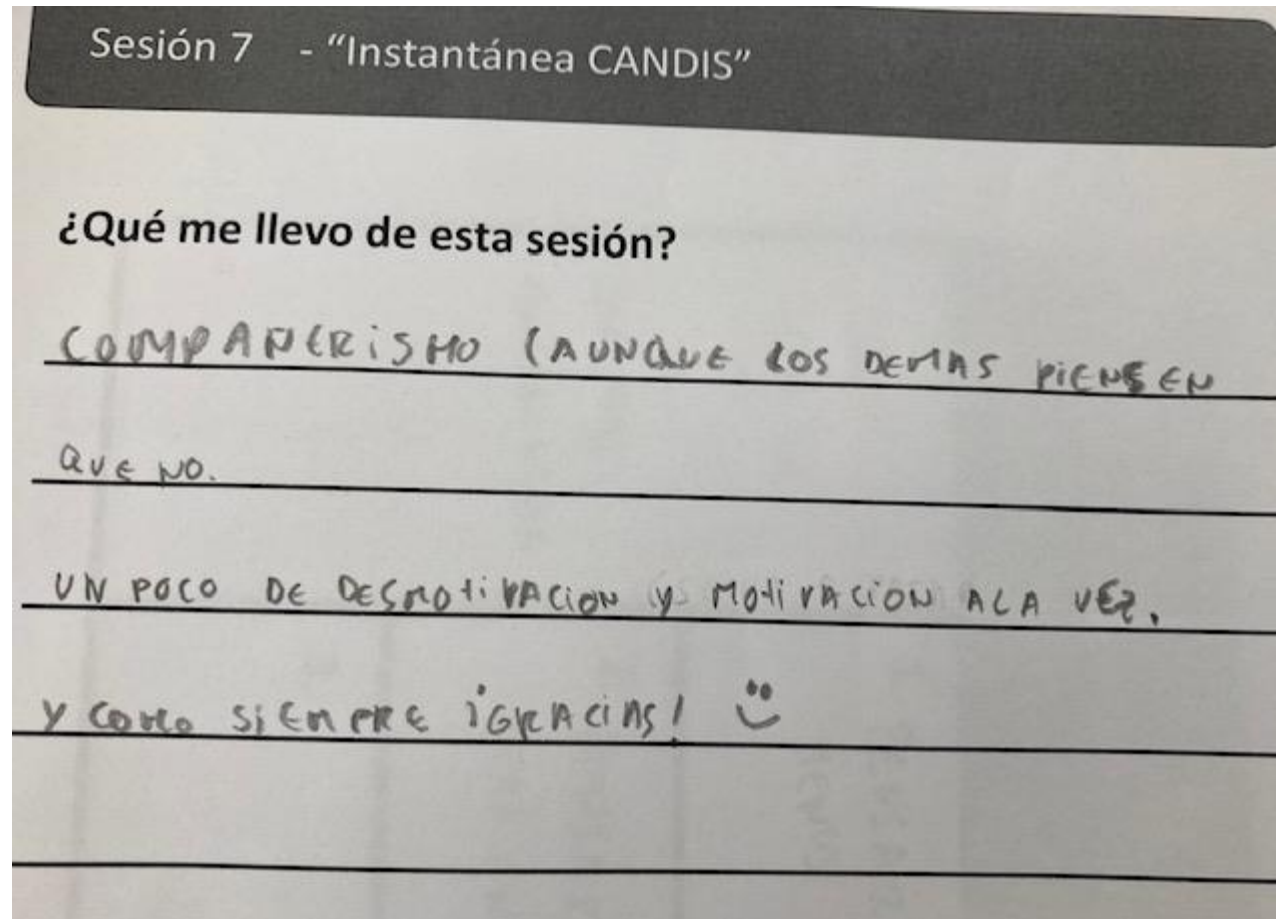 Sesión 7 - “Instantánea CANDIS”
¿Qué me llevo de esta sesión?
COMPANERiSMO (AUNQUE LOS DEMAS PIENSEN
QUE NO.
UN POCO DE DESMOTIVACION Y MOTIVACION ALA VEZ.
Y COMO SIEMPRE ¡GRACIAS!